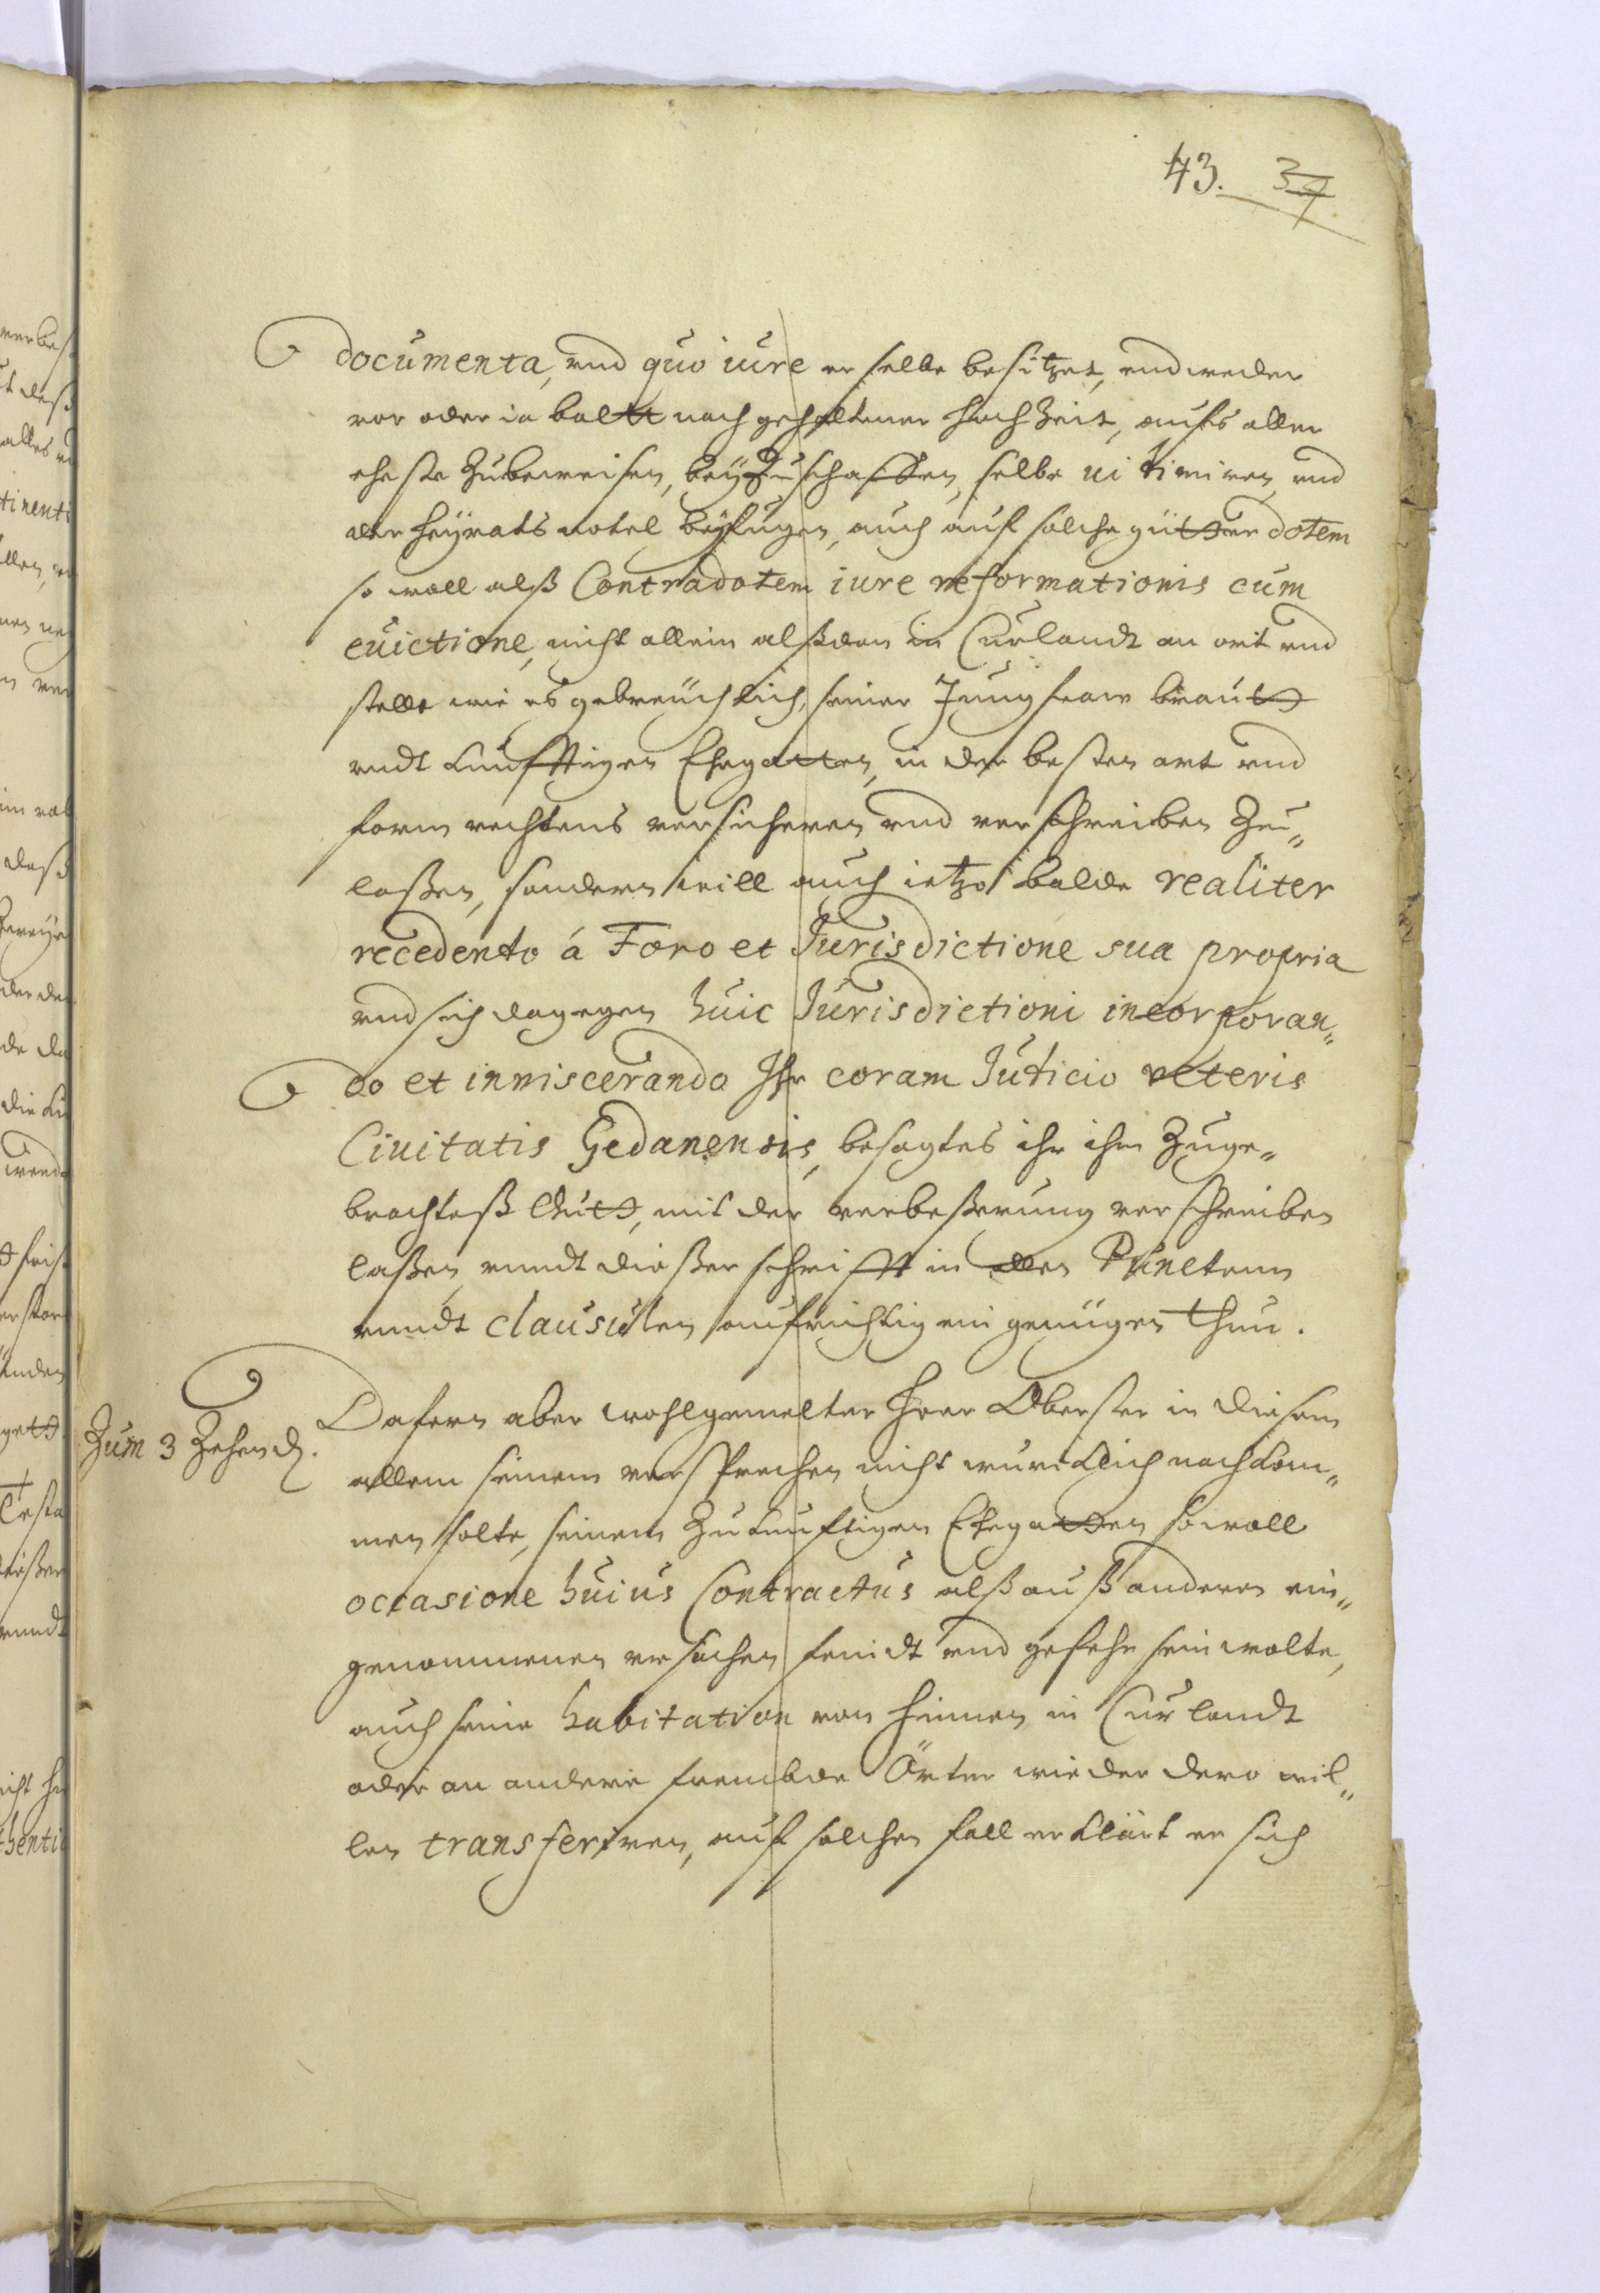 43. 37
documenta, vnd quo iure er selbe besitzet, endweder
vor oder ia baltt nach gehaltener hochzeit, aufs aller
eheste zubeweisen, beyzuschaffen, selbe vi timiren, vnd
der heyrats notel beyfugen, auch auf solche gütter dotem
so woll alß Contradotem iure reformationis cum
euictione, nicht allein alßdan in Curlandt an ort vnd
stelle wie es gebreüchlich, seiner Jungfraw brautt
vndt künfftigen Ehegatten, in der besten art vnd
form rechtens versicheren vnd verschreiben zu„
laßen, sondern will auch ietzo balde realiter
recedento á Foro et Jurisdictione sua propria
vnd sich dagegen huic Jurisdictioni incorporan„
do et inmiscerando Ihr coram Juticio veteris
Ciuitatis Gedanensis, besagtes ihr ihm zuge„
brachteß Gutt, mit der verbeßerung verschreiben
laßen, vnndt dießer schrifft in allen Puncten
vnndt clausulen aufrichtig ein genügen thun.
Zum 3 Zehend.
Dafern aber wohlgemelter Herr Oberster in diesem
allem seinem versprechen nicht würcklich nachkom„
men solte, seinem zukunftigen Ehegatten so woll
occasione huius Contractus alß auß anderen ein„
genommenen vrsachen feindt vnd gefehr sein wolte,
auch seine habitation von hinnen in Curlandt
oder an andere frembde Örter wieder dero wil„
len transferiren, auf solchen fall erklärt er sich